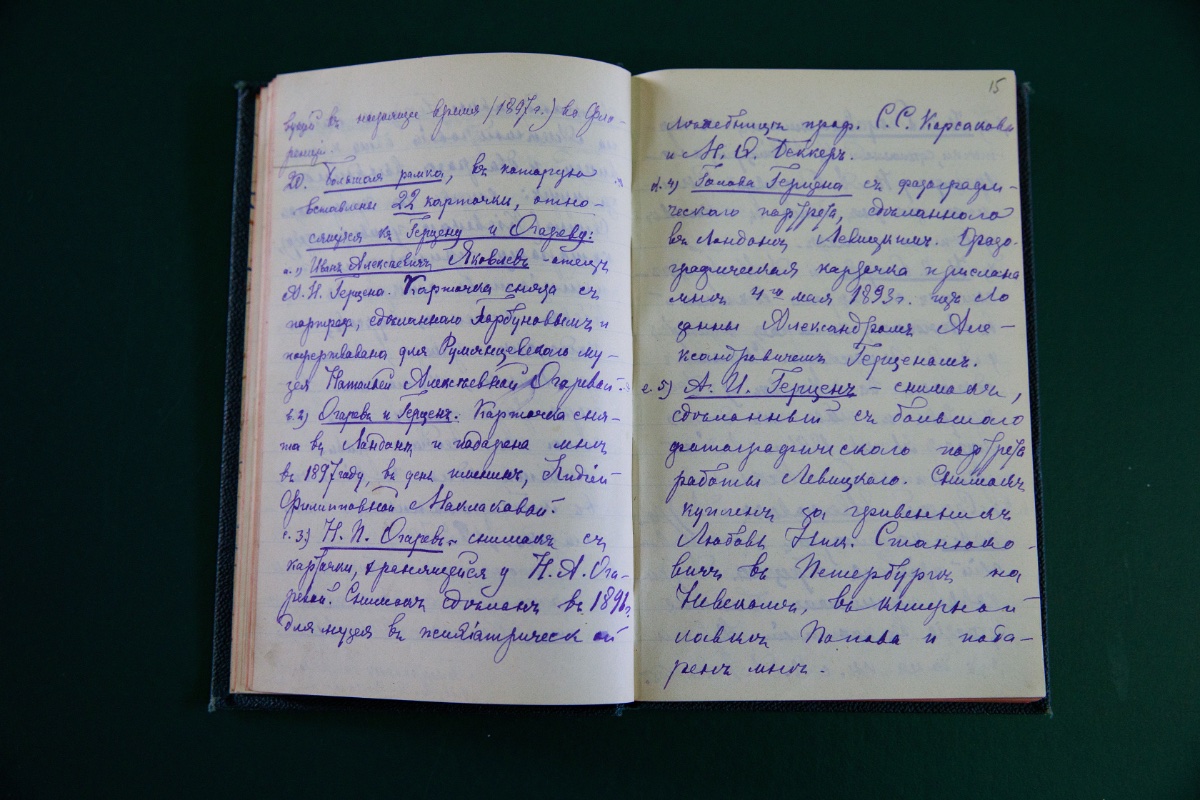 вущій въ настоящее время (1897 г.) во Фло-
ренціи.
20. Большая рамка, въ которую
вставлены 22 карточки, отно-
сящіяся къ Герцену и Огареву:
а. 1) Иванъ Алексѣевичъ Яковлевъ - отецъ
А. И. Герцена. Карточка снята съ
портрета, сдѣланнаго Горбуновымъ и
пожертвована для Румянцевскаго му-
зея Натальей Алексѣевной Огаревой.
в. 2) Огаревъ и Герценъ. Карточка сня-
та въ Лондонѣ и подарена мнѣ
въ 1897 году, въ день именинъ, Лидіей
Филипповной Маклаковой.
с. 3) Н. П. Огаревъ - снимокъ съ
карточки, хранящейся у Н. А. Ога-
ревой. Снимокъ сдѣланъ въ 1896 г.
для музея въ психіатрической
15
лѣчебницѣ проф. С. С. Корсакова
и М. Ѳ. Беккеръ.
d. 4) Голова Герцена съ фотографи-
ческаго портрета, сдѣланнаго
въ Лондонѣ Левицкимъ. Фото-
графическая карточка прислана
мнѣ 4го мая 1893 г. изъ Ло
занны Александромъ Але-
ксандровичемъ Герценомъ.
е. 5) А. И. Герценъ - снимокъ,
сдѣланный съ большого
фотографическаго портрета
работы Левицкаго. Снимокъ
купленъ за гривенникъ
Любовью Ник. Станюко-
вичъ въ Петербургѣ на
Невскомъ, въ книжной
лавкѣ Попова и пода-
ренъ мнѣ.